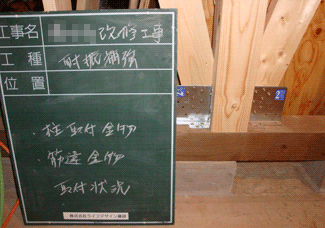 工事名 改修工事
工種 耐振補強
位置
・柱取付金物
・筋違金物
取付状況
株式会社ライフデザイン鎌田